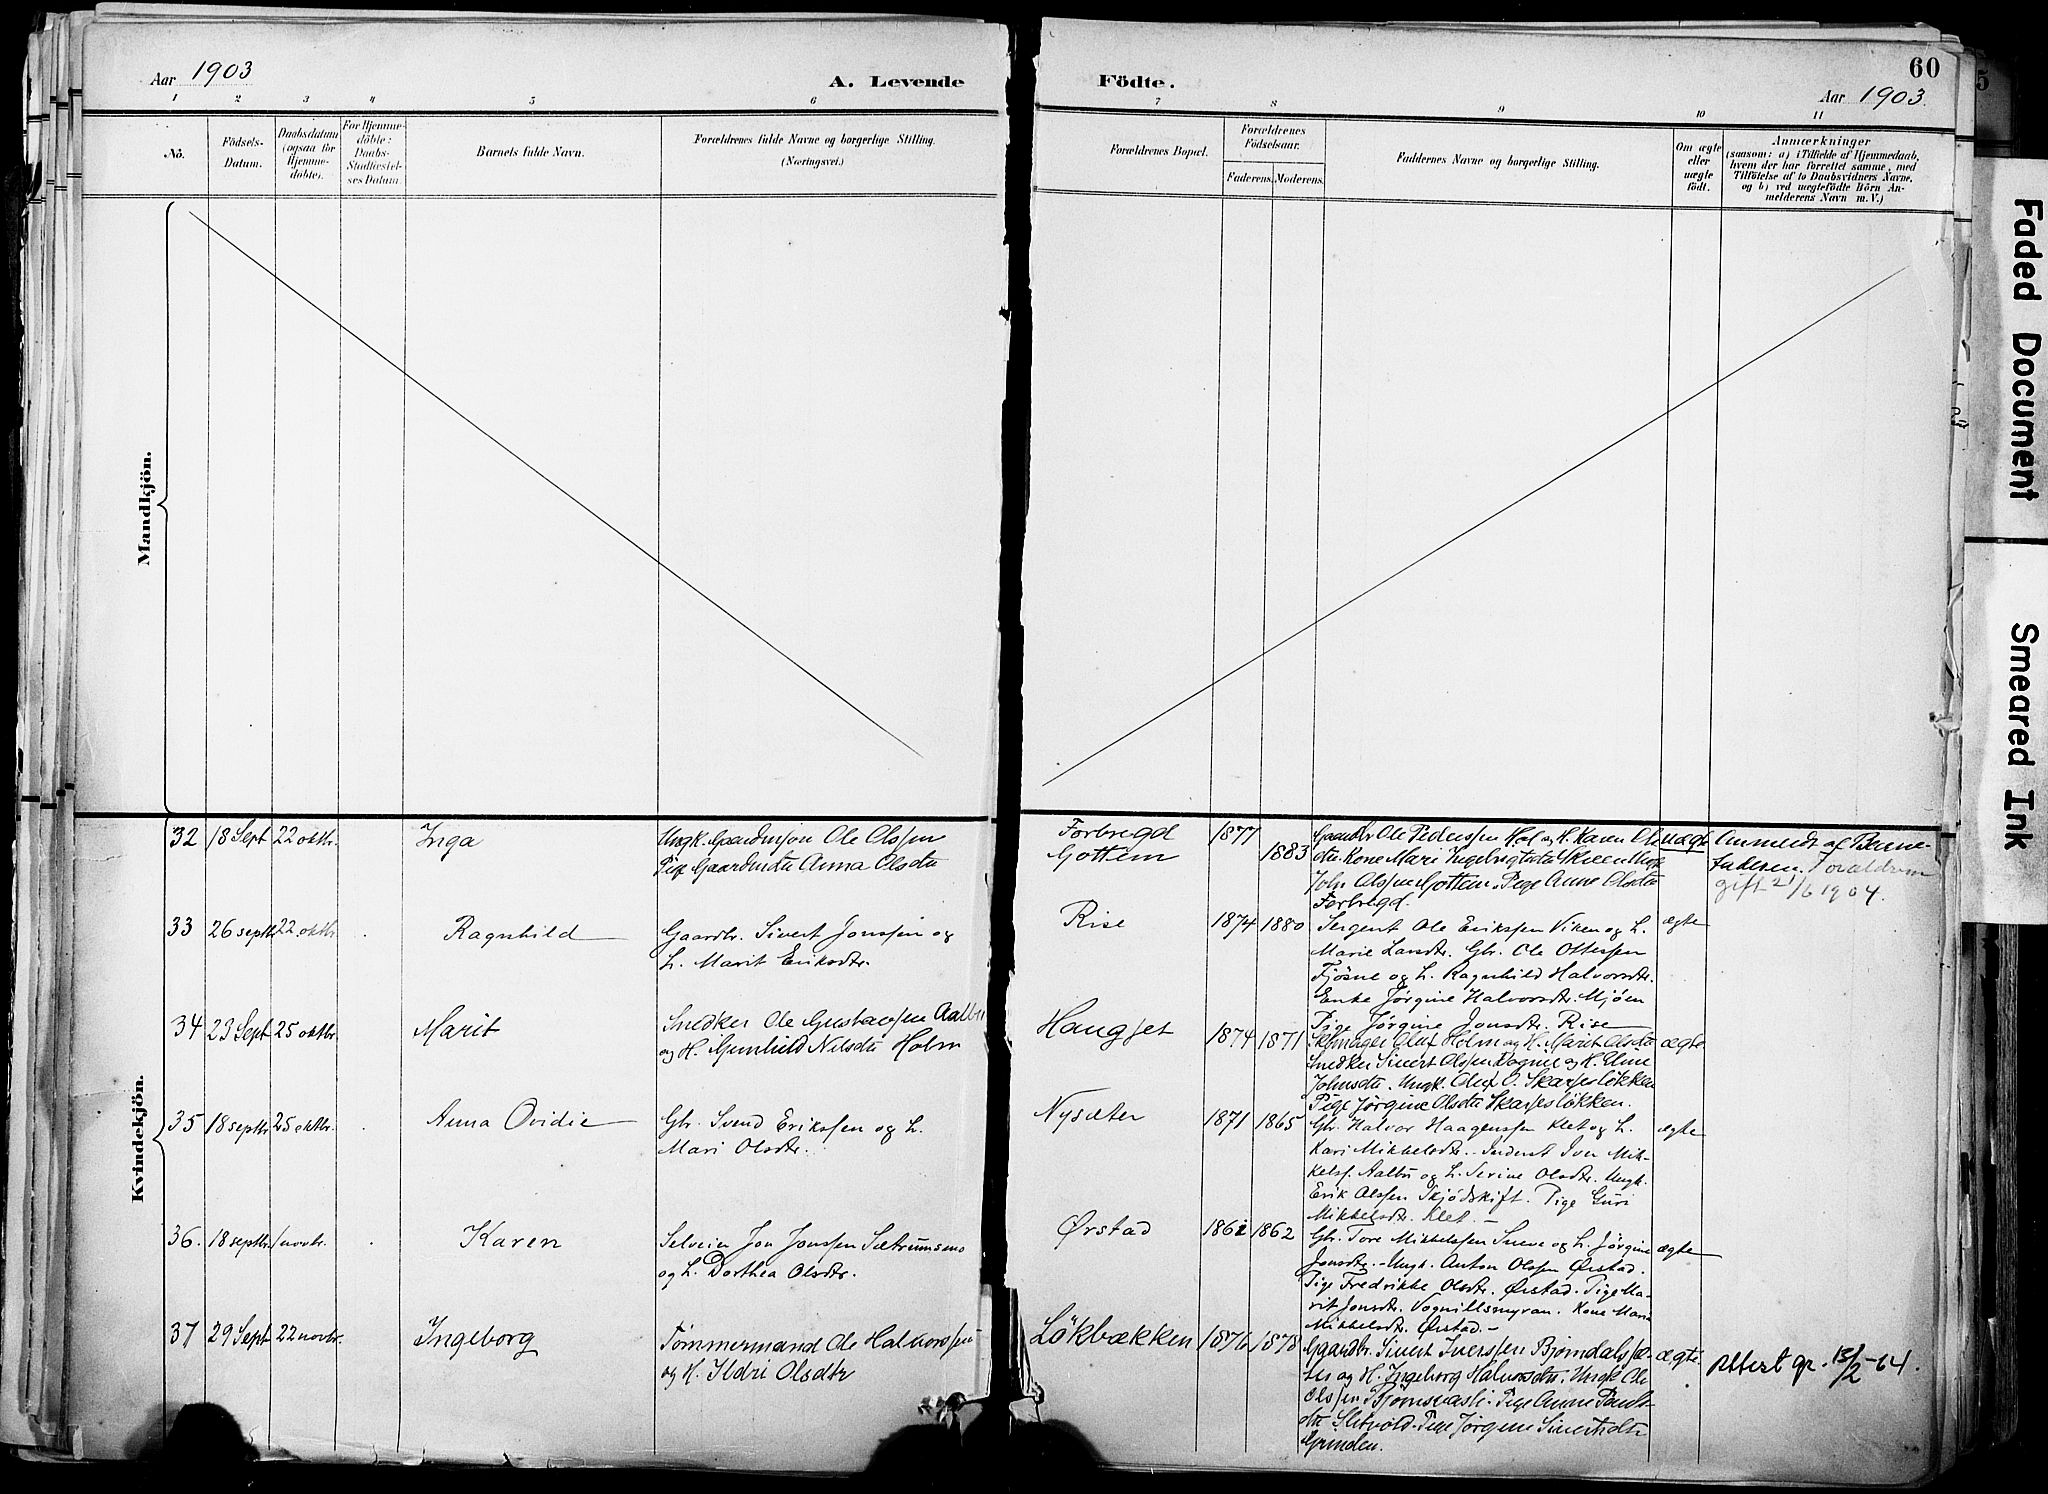 Aar 1903
A. Levende
Födte.
60
Aar 1903.
1 2 3 4 5 6 7 8 9 10 11
No.
Födsels-
Datum.
Daabsdatum
(ogsaa for
Hjemme-
döbte).
For Hjemme-
döbte:
Daabs-
Stadfæstel-
ses Datum
Barnets fulde Navn.
Forældrenes fulde Navne og borgerlige Stilling.
(Næringsvei.)
Forældrenes Bopæl.
Forældrenes
Födselsaar.
Faderens. Moderens.
Faddernes Navne og borgerlige Stilling.
Om ægte
eller
uægte
födt.
Anmærkninger
(saasom: a) i Tilfælde af Hjemmedaab,
hvem der har forrettet samme, med
Tilföielse af to Daabsvidners Navne,
og b) ved uægtefödte Börn An-
melderens Navn m. V.)
Mandkjön.
Kvindekjön.
32 18 Sept 22 oktbr. Inga
Ungk. Gaardmsøn Ole Olssen
Pige Gaardmdtr Anna Olsdtr
Forbregd
Gottem
1877
1883
Gaardbr Ole Pederssen Hol og H. Karen Ols-
dtr. Kone Mari Ingebrigtsdtr
John Olssen Gottem. Pige Anne Olsdtr
Forbregd.
uægte
Anmeldt af Barne-
faderen. Forældrene
gift 21/6 1904.
33 26 septbr. 22. oktbr. Ragnhild
Gaardbr. Sivert Jonssen og
h. Marit Eriksdtr.
Rise
1874 1880
Sergent Ole Erikssen Viken og h.
Marie Larsdtr. Gbr. Ole Ottersen
Fjøsne og h. Ragnhild Halvorsdtr.
Enke Jørgine Halvorsdtr. Mjøen
Pige Jørgine Jonsdtr. Rise
ægte
34 23 Sept 25 oktbr. Marit
Snedker Ole Gustavsen Aalbu
og H. Gunhild Nilsdtr Holm
Haugset
1874 1871
Skomager Oluf Holm og H. Marit Olsdtr
Snedker Sivert Olssen Vognil og H. Eline
Johnsdtr. Ungk. Oluf O. Skarjesløkken
Pige Jørgine Olsdtr Skarjesløkken.
ægte
35 18 septbr. 25 oktbr. Anna Ovidie
Gbr. Svend Erikssen og h.
Mari Olsdtr.
Nysæter
1871 1865
Gbr. Halvor Haagenssen Klet og h.
Kari Mikkelsdtr. Inderst Iver Mik-
kelsf. Aalbu og h. Serine Olsdtr. Ungk.
Erik Olssen Skjødskift. Pige Guri
Mikkelsdtr. Klet. –
ægte
36. 18 septbr. 1 novbr. Karen
Selveier Jon Jonssen Sætrumsmo
og h. Dorthea Olsdtr.
Ørstad
1861 1862
Gbr. Tore Mikkelssen Sneve og h. Jørgine
Jonsdtr. – Ungk. Anton Olssen Ørstad.
Pige Fredrikke Olsdtr. Ørstad. Pige Ma-
rit Jonsdtr. Vognillsmyran. Kone Mari
Mikkelsdtr. Ørstad. –
ægte
37 29 Sept 22 novbr. Ingeborg
Tømmermand Ole Halvorssen
og H. Ildri Olsdtr
Løkbækken
1876 1878
Gaardbr. Sivert Iverssen Bjørndalssæ-
ter og H. Ingeborg Halvorsdtr. Ungk Ole
Olssen . Pige Anne
dtr Sletvold. Pige Jørgine Sivertsdtr
Grinden.
ægte.
Attest gr. 13/2-64.
Faded Document
Smeared Ink